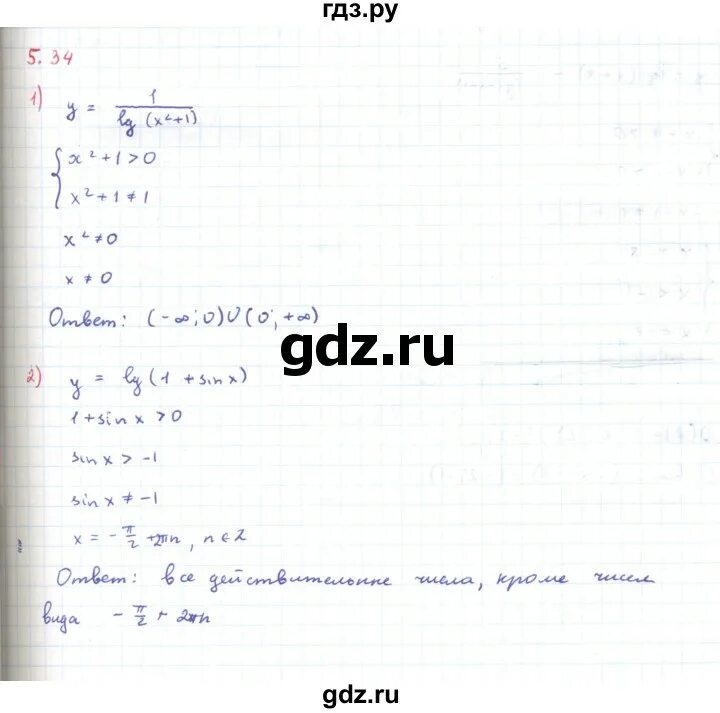 гдз.ру
5.34
1) y = 1 / lg (x²+1)
{ x²+1>0
x²+1≠1
x²≠0
x≠0
Ответ: (-∞;0)∪(0;+∞)
gdz.ru
2) y = lg(1+sinx)
1+sinx>0
sinx>-1
sinx≠-1
x=-π/2+2πn, n∈Z
Ответ: все действительные числа, кроме чисел
вида -π/2+2πn
gdz.ru